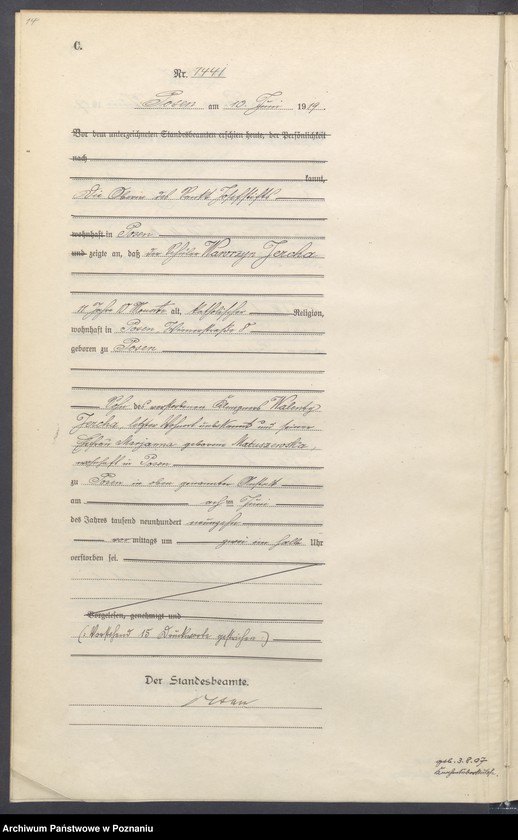 C.
Nr. 1441
Posen am 10. Juni 1919.
Vor dem unterzeichneten Standesbeamten erschien heute, der Persönlichkeit
nach
kannt,
Die Oberin des Sankt Josefstifts
wohnhaft in Posen
und zeigte an, daß der Schüler Wawrzyn Jercha
11 Jahre 0 Monate alt, katholischer Religion,
wohnhaft in Posen 8
geboren zu Posen
Sohn des verstorbenen Walenty
Jercha, letzter Wohnort unbekannt und seiner
Ehefrau Marjanna geborene
wohnhaft in Posen
zu Posen in oben genannter Anstalt
am achten Juni
des Jahres tausend neunhundert neunzehn
vormittags um zwei ein halb Uhr
verstorben sei.
Vorgelesen, genehmigt und
(Vorstehend 15 Druckworte gestrichen)
Der Standesbeamte.
geb. 3.8.07
Archiwum Państwowe w Poznaniu